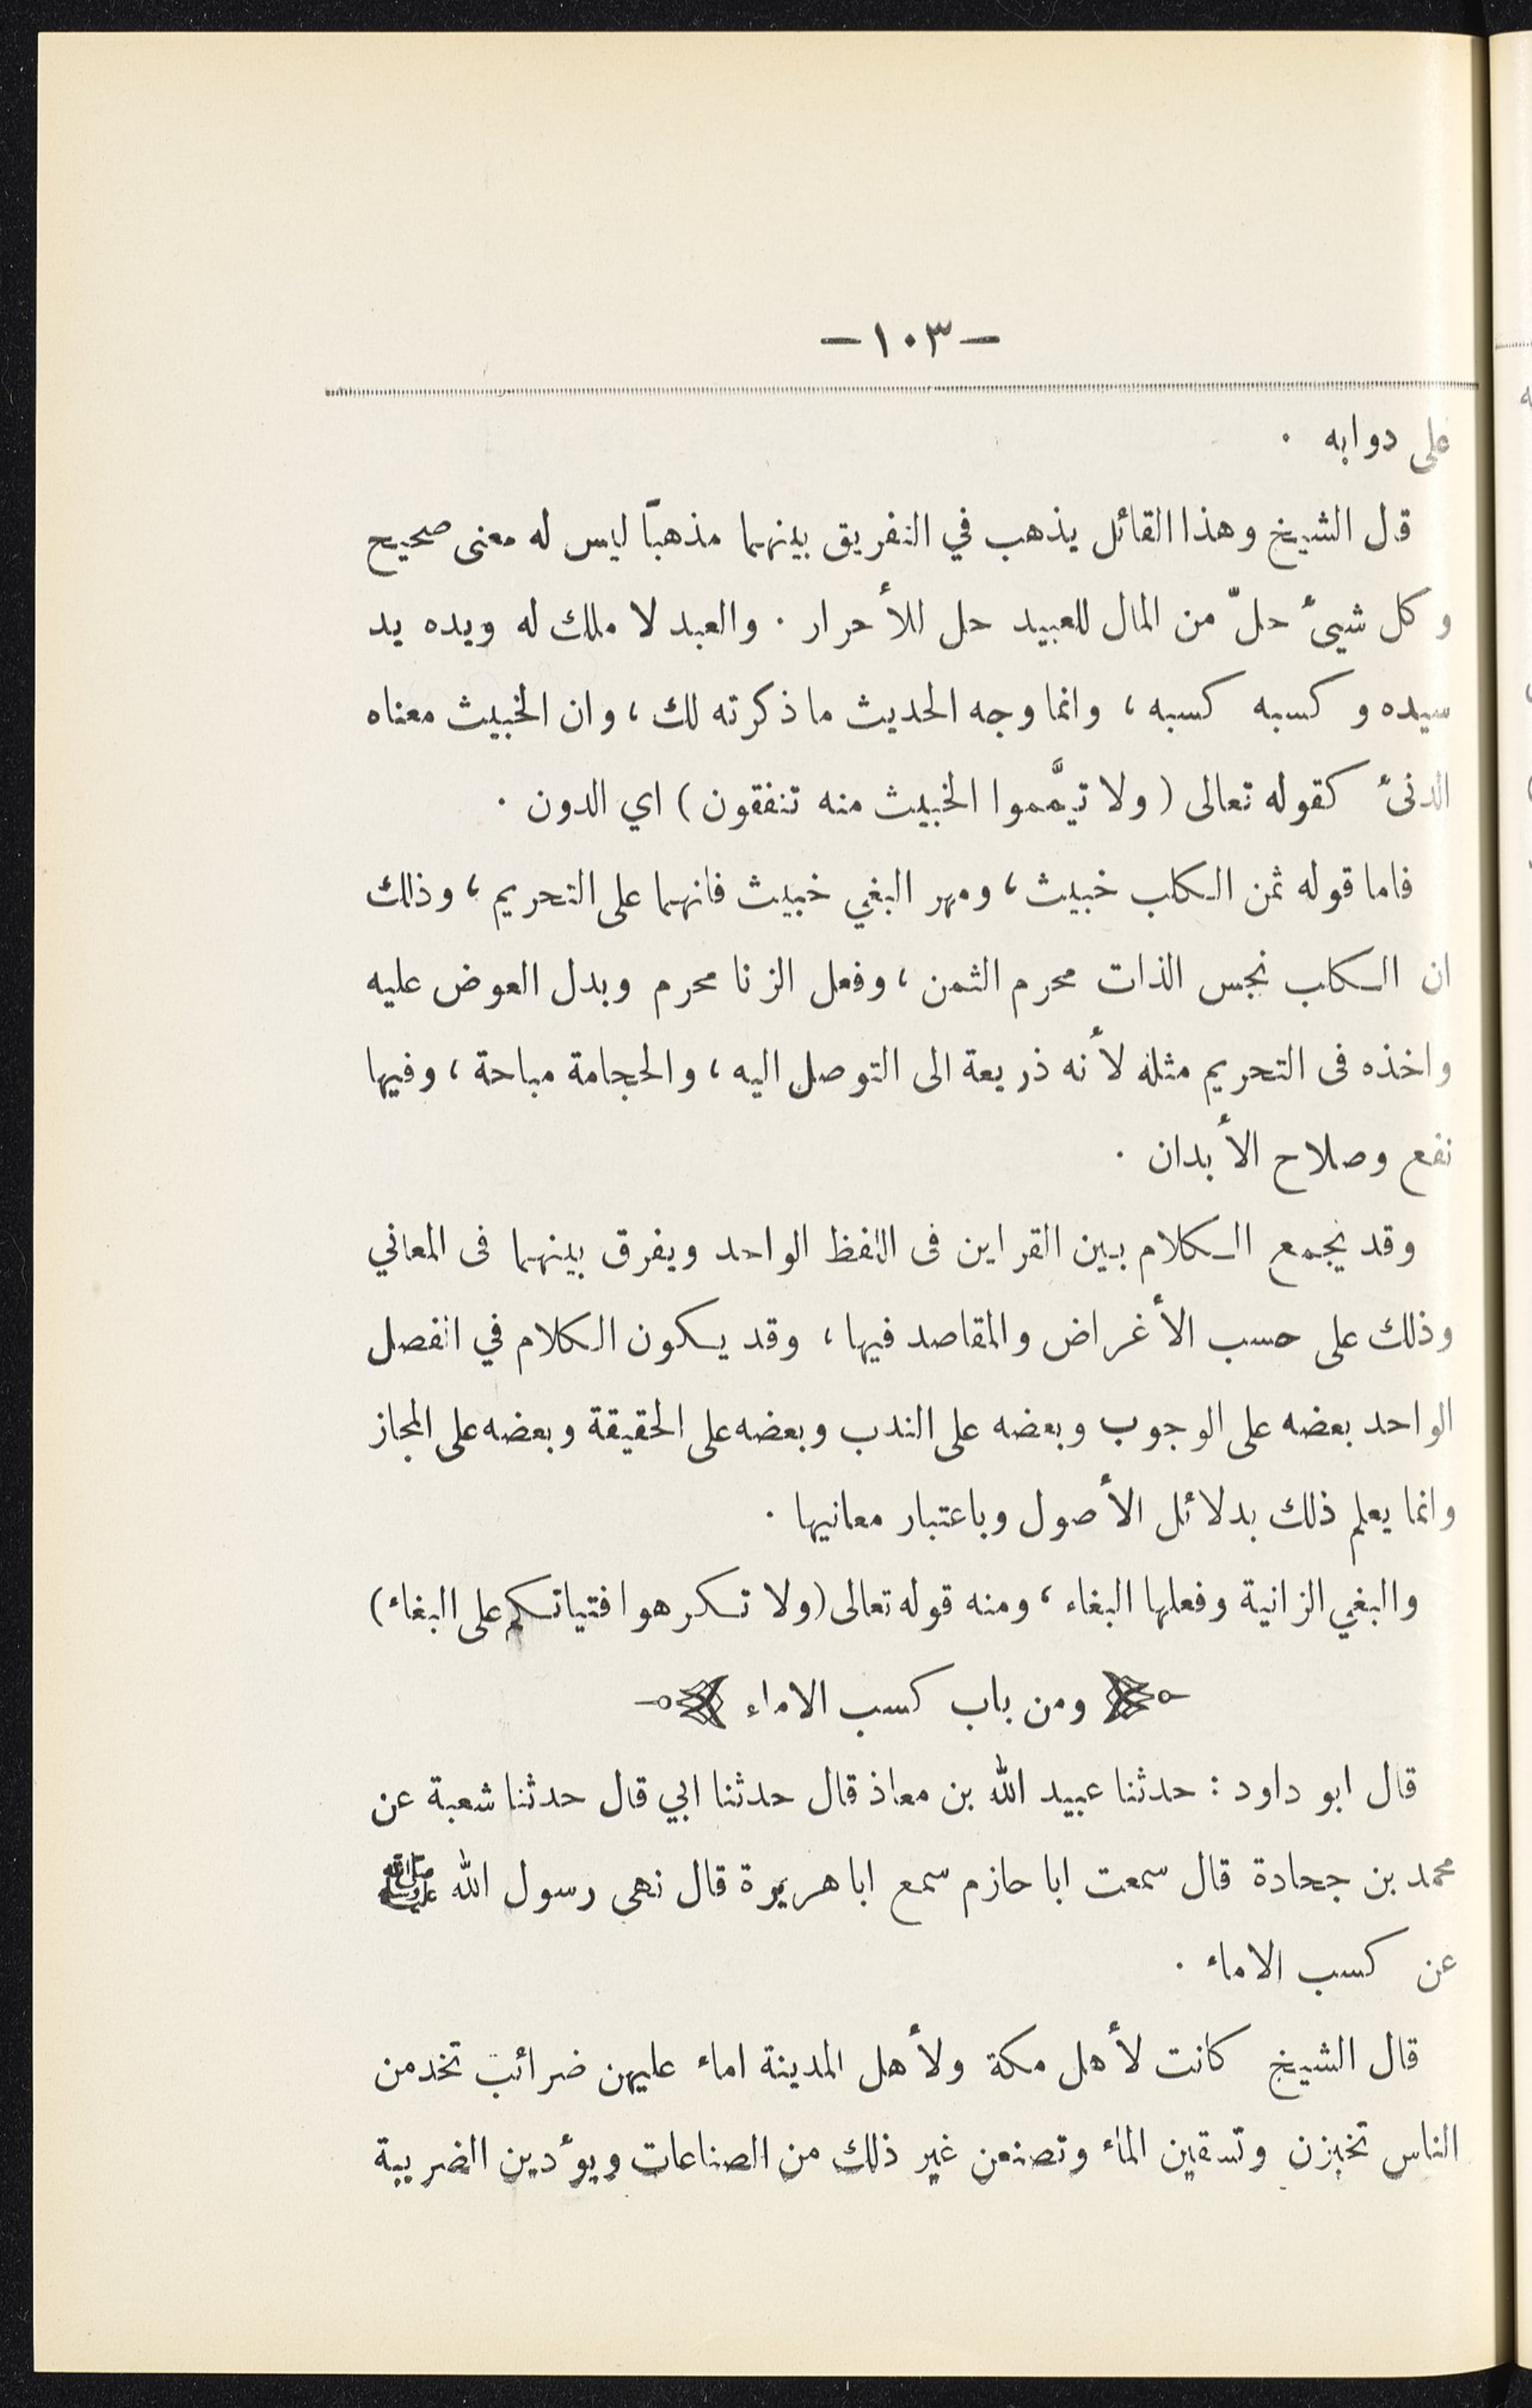 — ١٠٣ —
على دوابه .
قال الشيخ وهذا القائل يذهب في التفريق بينهما مذهباً ليس له معنى صحيح
وكل شيئ حلّ من المال للعبيد حل للأحرار . والعبد لا ملك له ويده يد
سيده وكسبه كسبه ، وانما وجه الحديث ما ذكرته لك ، وان الخبيث معناه
الدنئ كقوله تعالى ( ولا تيمَّموا الخبيث منه تنفقون ) اي الدون .
فاما قوله ثمن الكلب خبيث ، ومهر البغي خبيث فانهما على التحريم ، وذلك
ان الكلب نجس الذات محرم الثمن ، وفعل الزنا محرم وبدل العوض عليه
واخذه فى التحريم مثله لأنه ذريعة الى التوصل اليه ، والحجامة مباحة ، وفيها
نفع وصلاح الأبدان .
وقد يجمع الكلام بين القراين فى اللفظ الواحد ويفرق بينهما فى المعاني
وذلك على حسب الأغراض والمقاصد فيها ، وقد يكون الكلام في الفصل
الواحد بعضه على الوجوب وبعضه على الندب وبعضه على الحقيقة وبعضه على المجاز
وانما يعلم ذلك بدلائل الأصول وباعتبار معانيها .
والبغي الزانية وفعلها البغاء ، ومنه قوله تعالى ( ولا تكرهوا فتياتكم على البغاء )
ومن باب كسب الاماء
قال ابو داود : حدثنا عبيد الله بن معاذ قال حدثنا ابي قال حدثنا شعبة عن
محمد بن جحادة قال سمعت ابا حازم سمع ابا هريرة قال نهى رسول الله ﷺ
عن كسب الاماء .
قال الشيخ كانت لأهل مكة ولأهل المدينة اماء عليهن ضرائب تخدمن
الناس تخبزن وتسقين الماء وتصنعن غير ذلك من الصناعات ويؤدين الضريبة